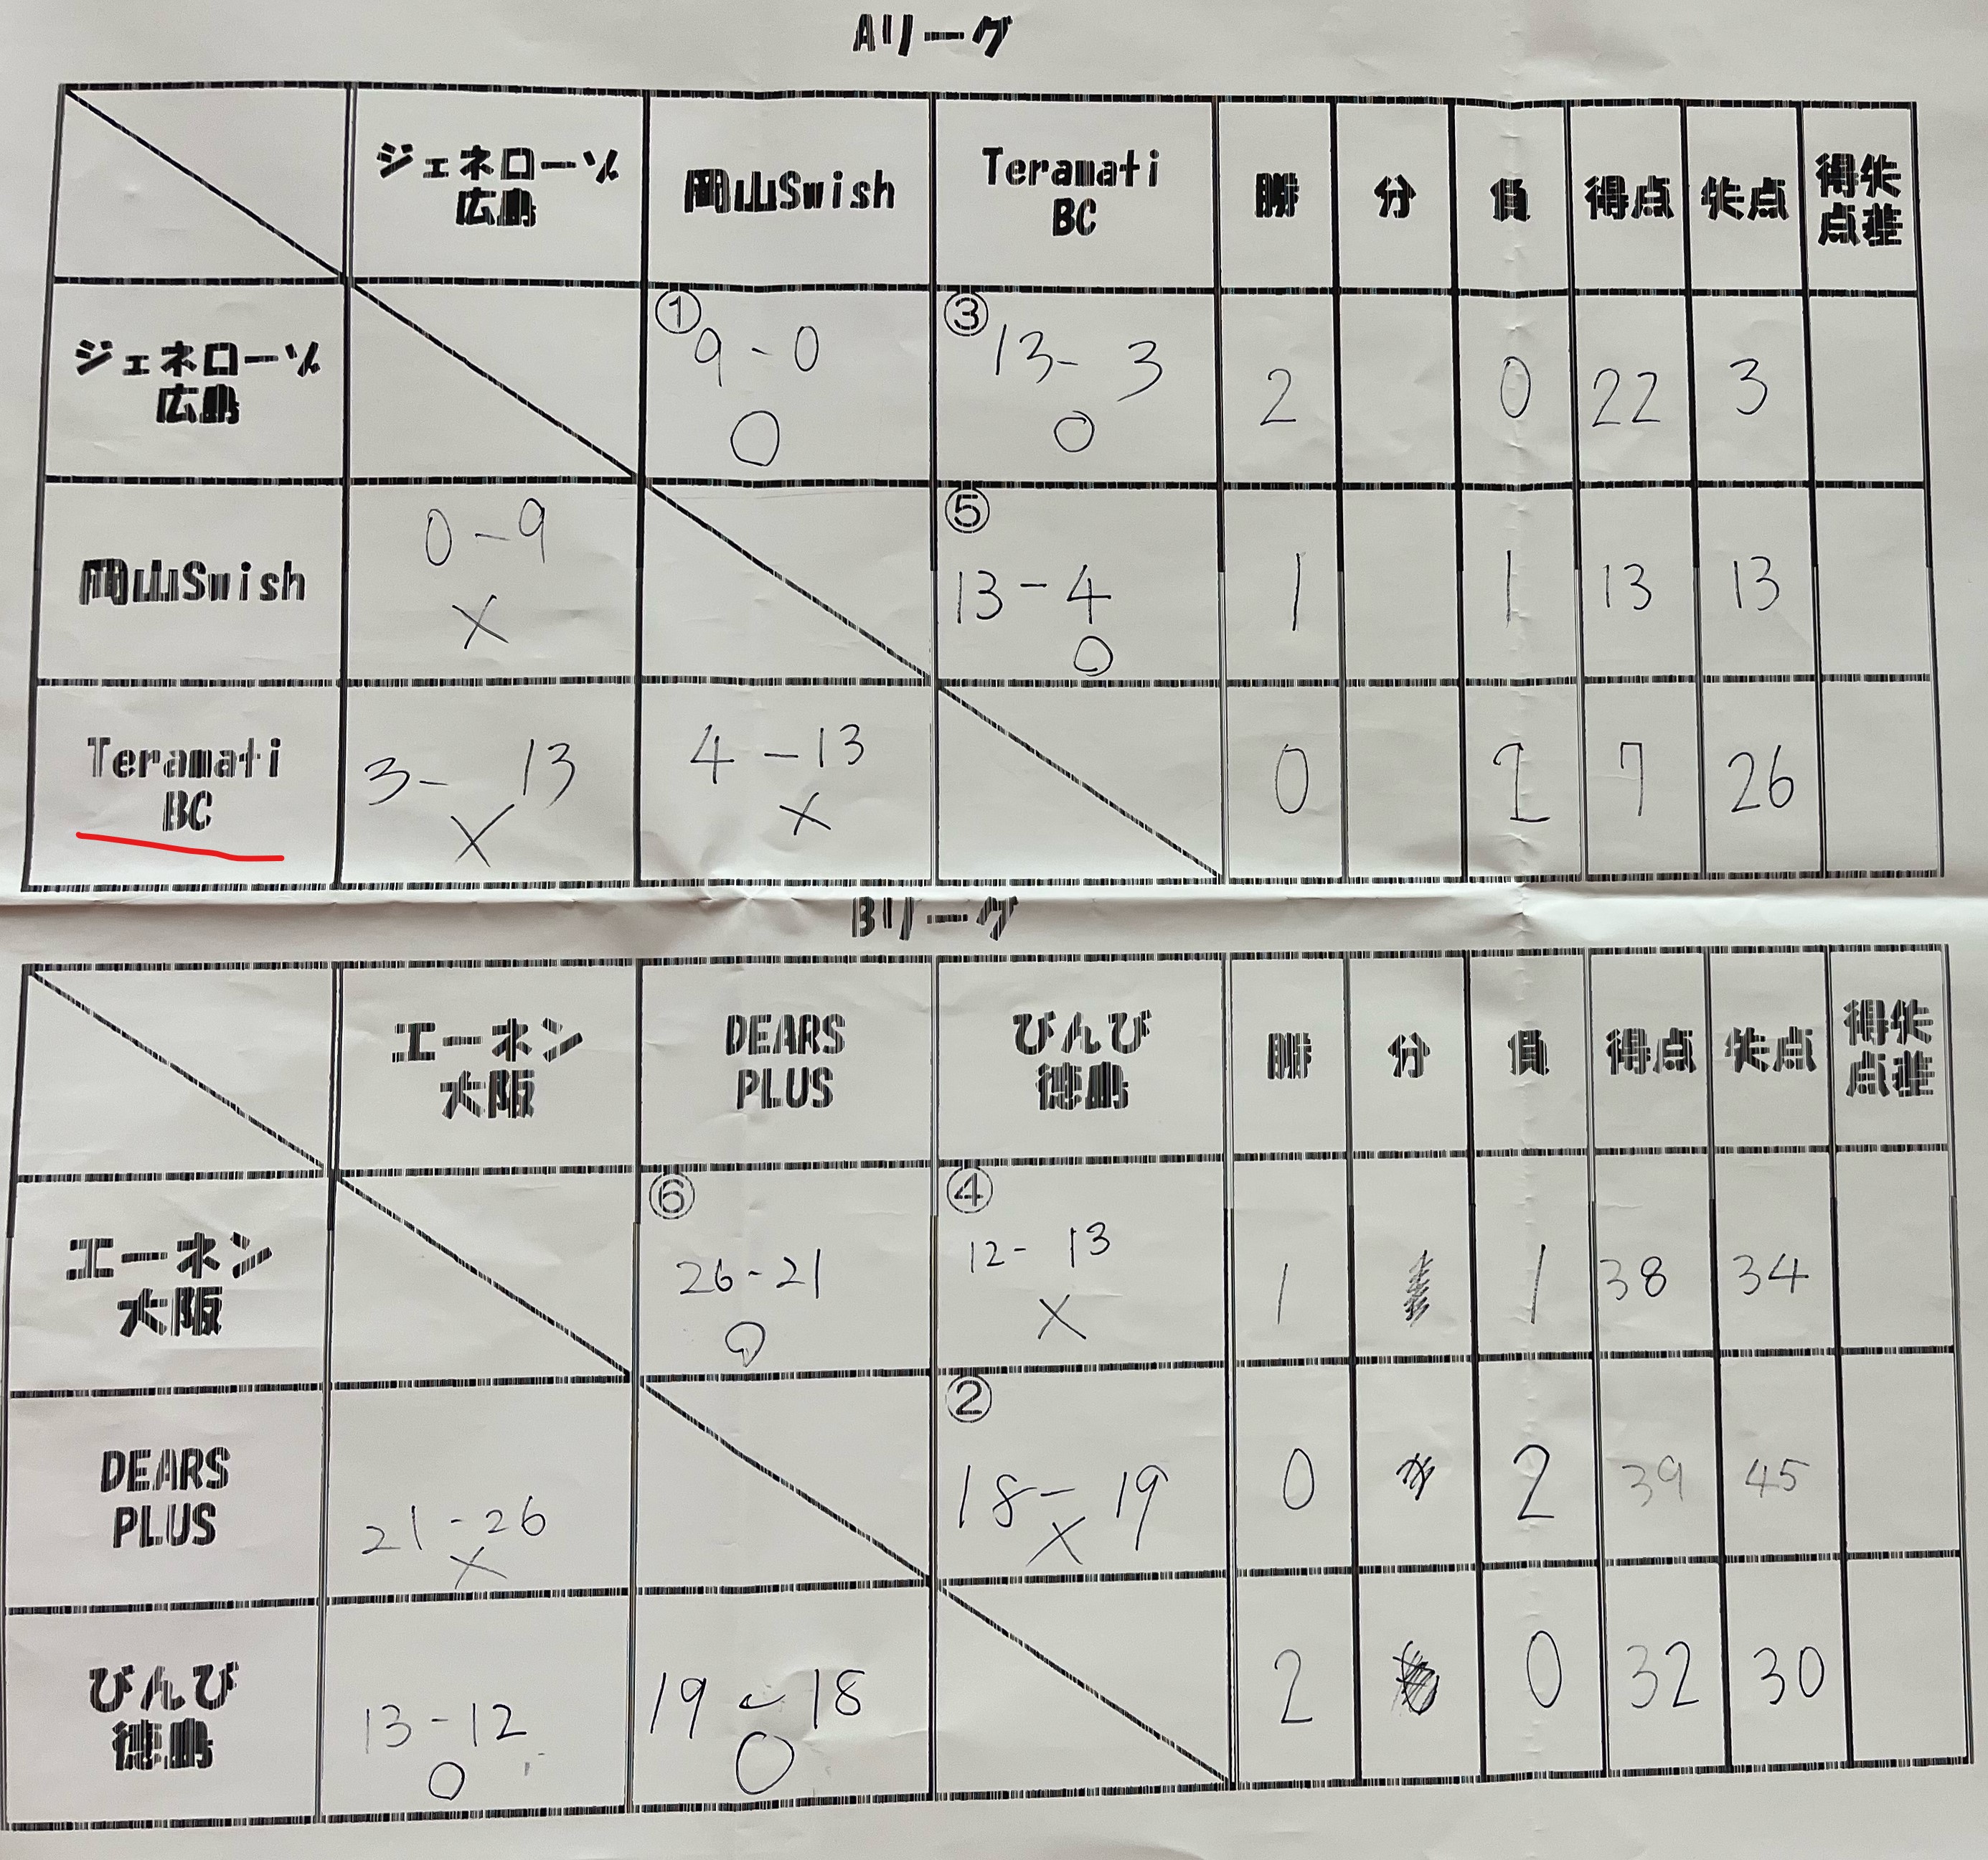 Aリーグ
ジェネローソ
広島
岡山Swish
Teramati
BC
勝
分
負
得点
失点
得失
点差
ジェネローソ
広島
①
9 - 0
○
③
13 - 3
○
2
0
22
3
岡山Swish
0 - 9
×
⑤
13 - 4
○
1
1
13
13
Teramati
BC
3 - 13
×
4 - 13
×
0
2
7
26
Bリーグ
エーネン
大阪
DEARS
PLUS
びんび
徳島
勝
分
負
得点
失点
得失
点差
エーネン
大阪
⑥
26 - 21
○
④
12 - 13
×
1
1
38
34
DEARS
PLUS
21 - 26
×
②
18 - 19
×
0
2
39
45
びんび
徳島
13 - 12
○
19 - 18
○
2
0
32
30